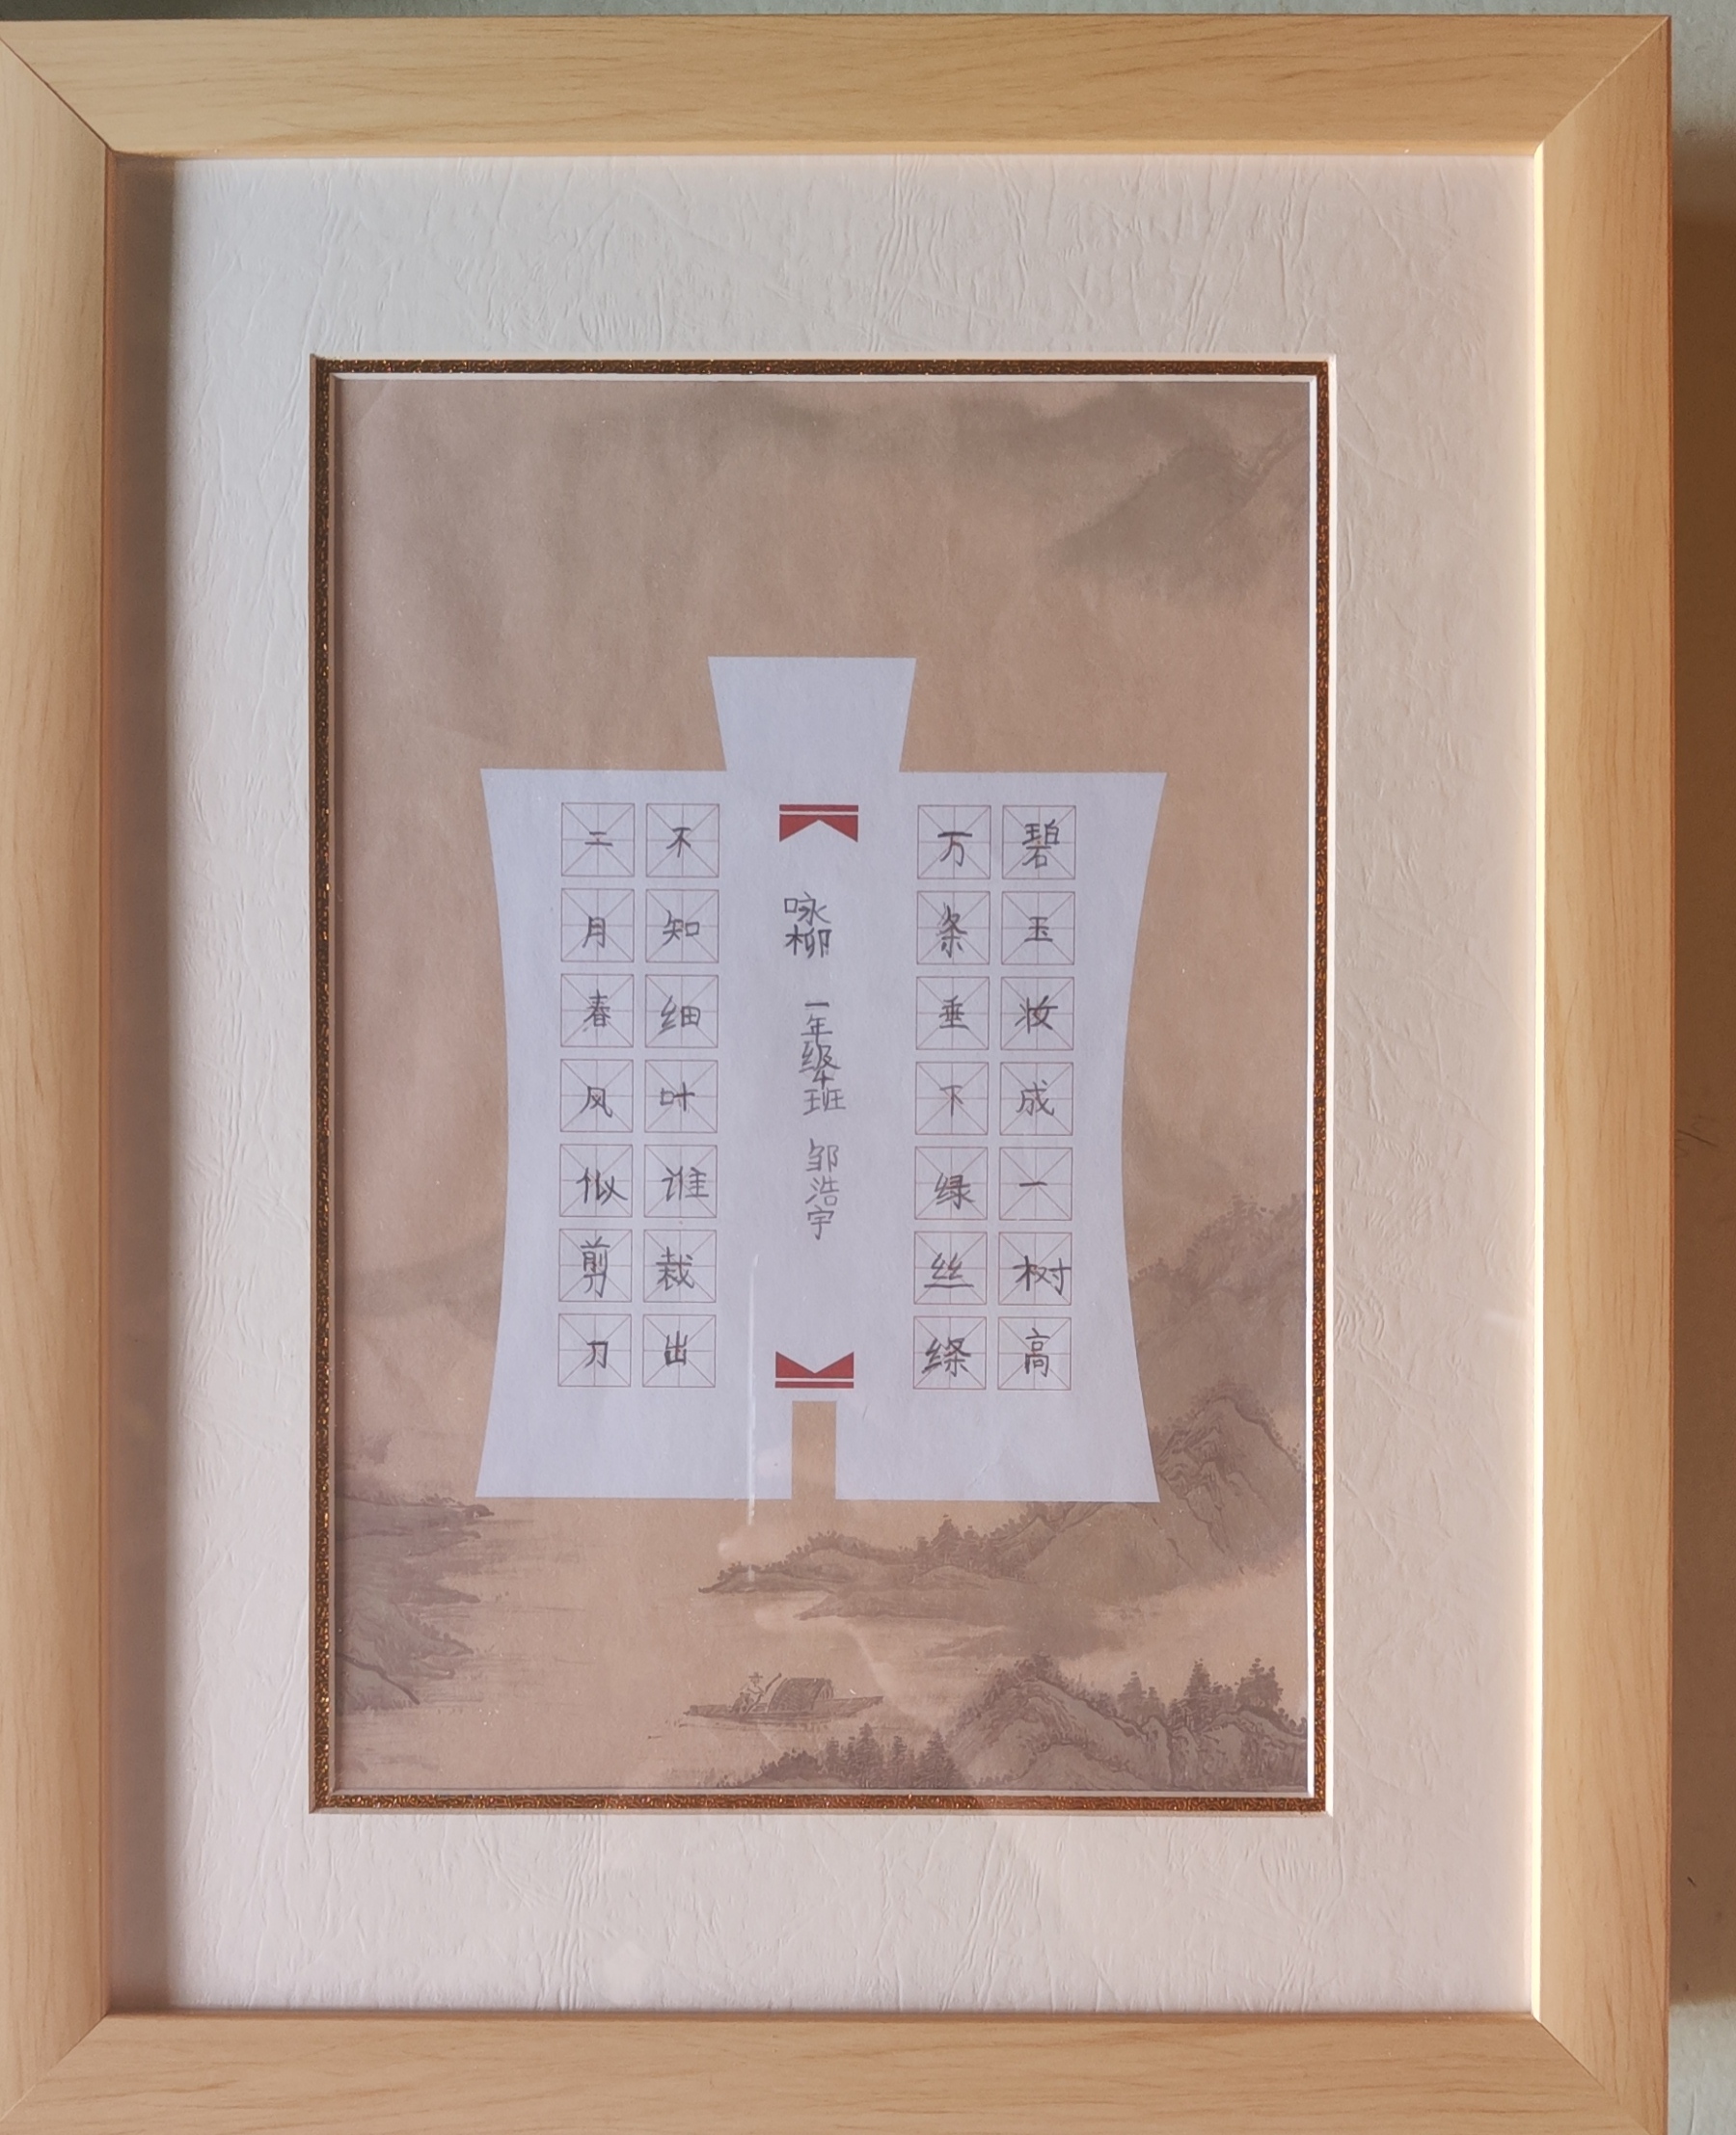 碧玉妆成一树高
万条垂下绿丝绦
咏柳 一年级班 邹浩宇
不知细叶谁裁出
二月春风似剪刀